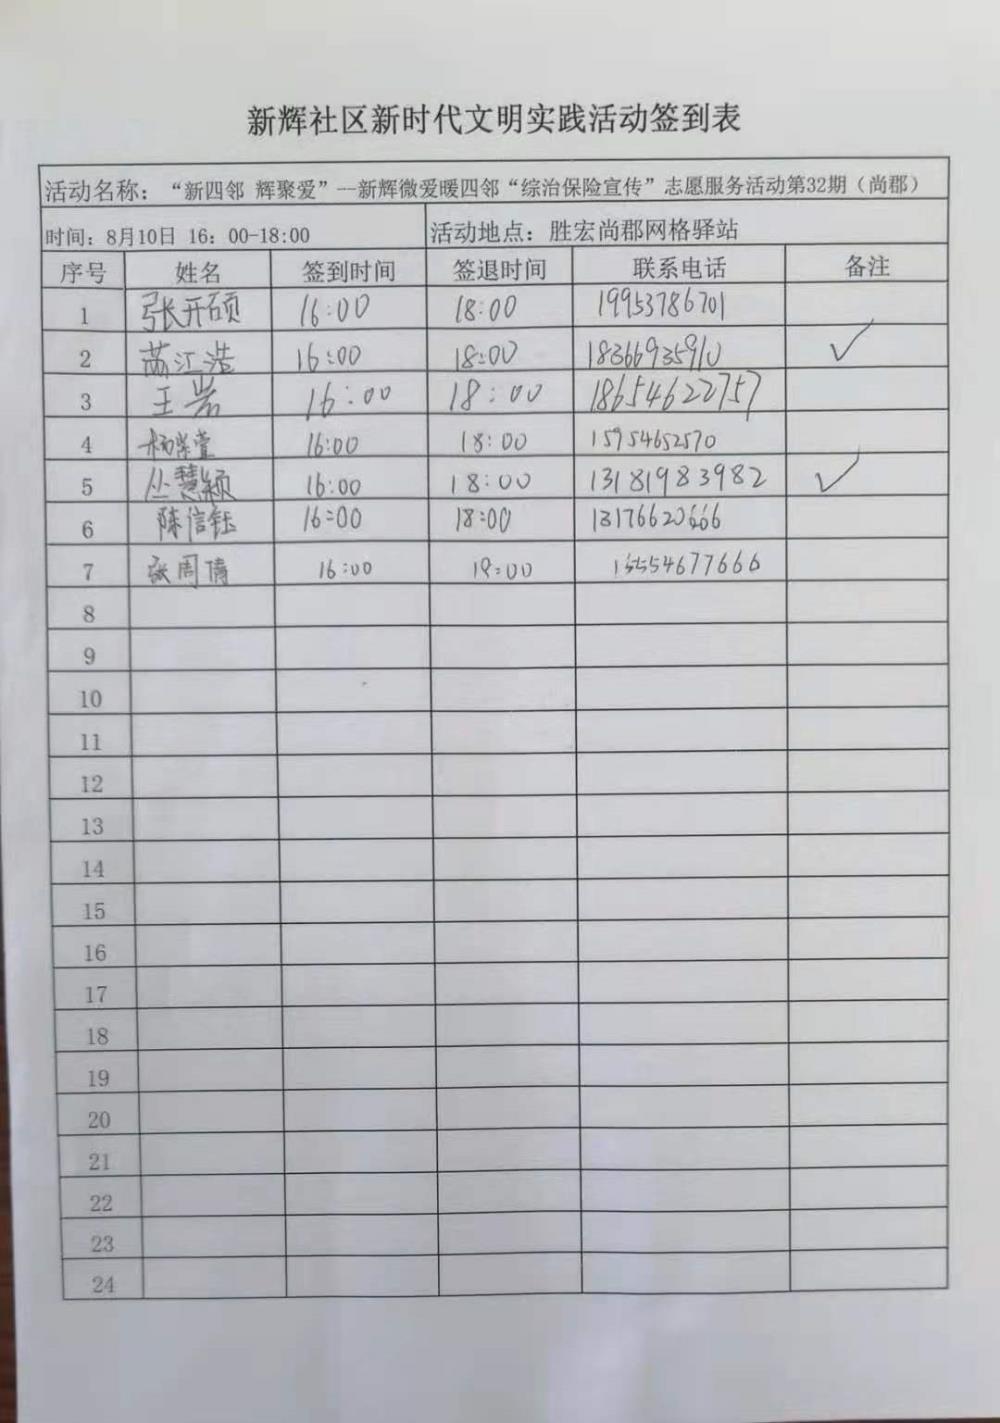 新辉社区新时代文明实践活动签到表
活动名称：“新四邻 辉聚爱”--新辉微爱暖四邻“综治保险宣传”志愿服务活动第32期（尚郡）
时间：8月10日 16：00-18:00 活动地点：胜宏尚郡网格驿站
序号 姓名 签到时间 签退时间 联系电话 备注
1 张开硕 16:00 18:00 19953786701
2 江浩 16:00 18:00 18366935910 ✓
3 王岩 16:00 18:00 18654622757
4 杨 16:00 18:00 15954652570
5 丛慧颖 16:00 18:00 13181983982 ✓
6 陈信钰 16:00 18:00 13176620666
7 张周倩 16:00 18:00 15554677666
8
9
10
11
12
13
14
15
16
17
18
19
20
21
22
23
24